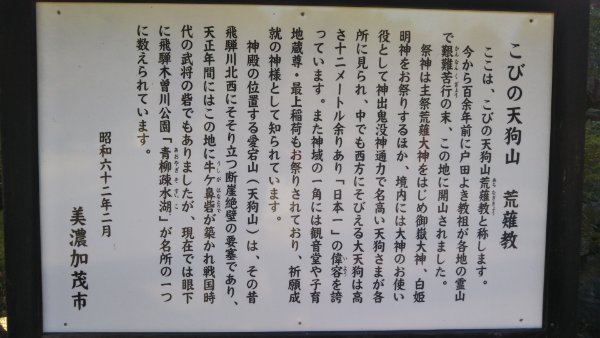 こびの天狗山　荒薙教
ここは、こびの天狗山荒薙教と称します。
今から百余年前に戸田よき教祖が各地の霊山
で艱難苦行の末、この地に開山されました。
祭神は主祭荒薙大神をはじめ御嶽大神、白姫
明神をお祭りするほか、境内には大神のお使い
役として神出鬼没神通力で名高い天狗さまが各
所に見られ、中でも西方にそびえる大天狗は高
さ十二メートル余りあり「日本一」の偉容を誇
っています。また神域の一角には観音堂や子育
地蔵尊・最上稲荷もお祭りされており、祈願成
就の神様として知られています。
神殿の位置する愛宕山（天狗山）は、その昔
飛騨川北西にそそり立つ断崖絶壁の要塞であり、
天正年間にはこの地に牛ケ鼻砦が築かれ戦国時
代の武将の砦でもありましたが、現在では眼下
に飛騨木曽川公園「青柳疎水湖」が名所の一つ
に数えられています。
昭和六十二年二月
美濃加茂市